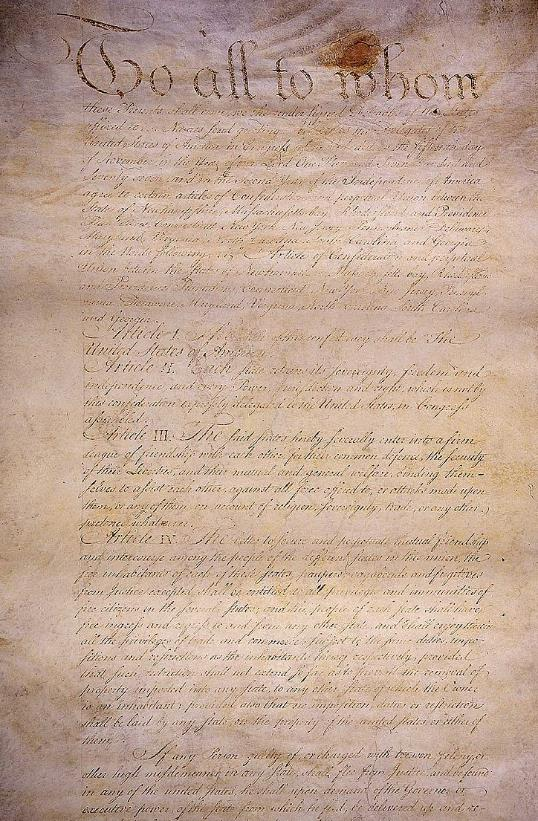 To all to whom
these Presents shall come, we the under signed Delegates of the States
affixed to our Names send greeting. Whereas the Delegates of the
United States of America in Congress assembled did on the fifteenth day
of November in the Year of our Lord One Thousand Seven Hundred and
Seventy seven, and in the Second Year of the Independence of America
agree to certain articles of Confederation and perpetual Union between the
States of Newhampshire, Massachusetts-bay, Rhodeisland and Providence
Plantations, Connecticut, New York, New Jersey, Pennsylvania, Delaware,
Maryland, Virginia, North-Carolina, South-Carolina and Georgia
in the Words following, viz. Articles of Confederation and perpetual
Union between the States of Newhampshire, Massachusetts-bay, Rhodeisland
and Providence Plantations, Connecticut, New-York, New-Jersey, Pennsyl-
vania, Delaware, Maryland, Virginia, North-Carolina, South-Carolina
and Georgia.
Article I. The Stile of this confederacy shall be "The
United States of America."
Article II. Each state retains its sovereignty, freedom and
independence, and every Power, Jurisdiction and right, which is not by
this confederation expressly delegated to the United States, in Congress
assembled.
Article III. The said states hereby severally enter into a firm
league of friendship with each other, for their common defence, the security
of their Liberties, and their mutual and general welfare, binding them-
selves to assist each other, against all force offered to, or attacks made upon
them, or any of them, on account of religion, sovereignty, trade, or any other
pretence whatever.
Article IV. The better to secure and perpetuate mutual friendship
and intercourse among the people of the different states in this union, the
free inhabitants of each of these states, paupers, vagabonds and fugitives
from Justice excepted, shall be entitled to all privileges and immunities of
free citizens in the several states; and the people of each state shall have
free ingress and regress to and from any other state, and shall enjoy therein
all the privileges of trade and commerce, subject to the same duties, impo-
sitions and restrictions as the inhabitants thereof respectively, provided
that such restriction shall not extend so far as to prevent the removal of
property imported into any state, to any other state of which the Owner
is an inhabitant; provided also that no imposition, duties or restriction
shall be laid by any state, on the property of the united states, or either of
them.
If any Person guilty of, or charged with treason, felony, or
other high misdemeanor in any state, shall flee from Justice, and be found
in any of the united states, he shall upon demand of the Governor or
executive power, of the state from which he fled, be delivered up and re-